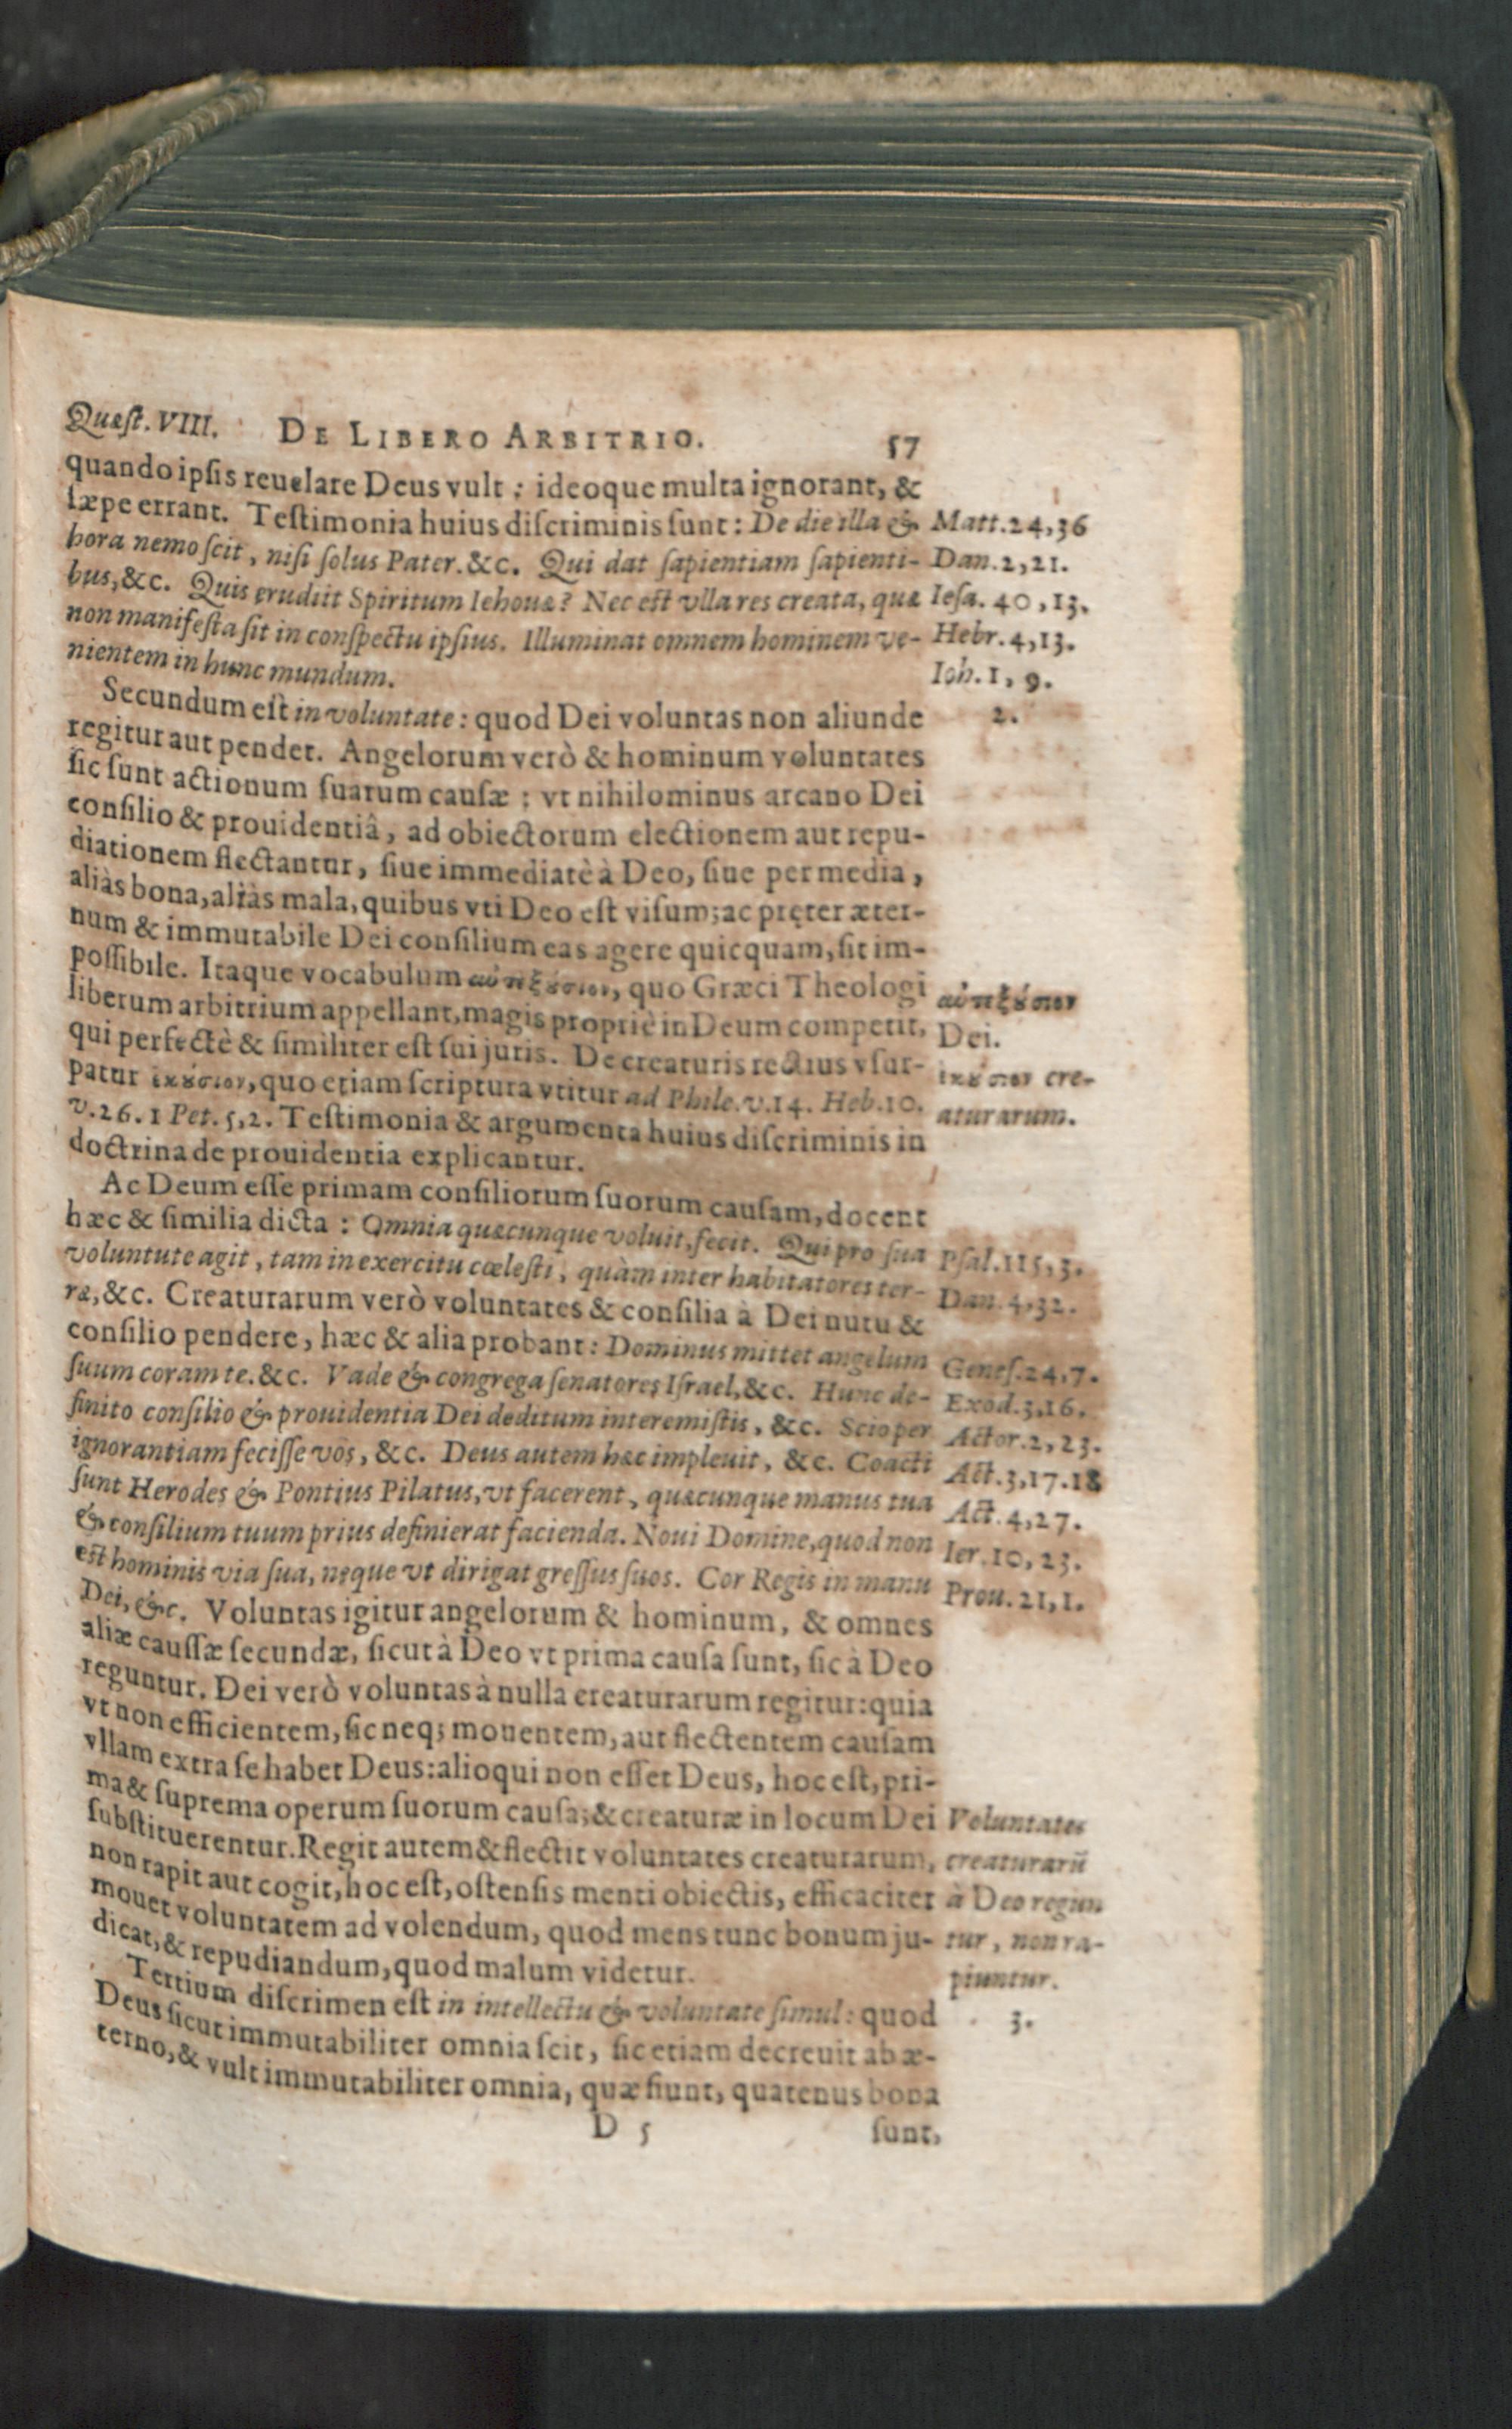 Quæſt. VIII. DE LIBERO ARBITRIO. 57
quando ipſis reuelare Deus vult : ideoque multa ignorant, &
ſæpe errant. Teſtimonia huius diſcriminis ſunt: De die illa & Matt.24,36
hora nemo ſcit, niſi ſolus Pater.&c. Qui dat ſapientiam ſapienti- Dan.2,21.
bus,&c. Quis erudiit Spiritum Iehouæ? Nec eſt vlla res creata, quæ Ieſa. 40,13.
non manifeſta ſit in conſpectu ipſius. Illuminat omnem hominem ve- Hebr.4,13.
nientem in hunc mundum. Ioh.1, 9.
Secundum eſt in voluntate: quod Dei voluntas non aliunde 2.
regitur aut pendet. Angelorum verò & hominum voluntates
ſic ſunt actionum ſuarum cauſæ ; vt nihilominus arcano Dei
conſilio & prouidentiâ, ad obiectorum electionem aut repu-
diationem flectantur, ſiue immediatè à Deo, ſiue per media,
aliàs bona, aliàs mala, quibus vti Deo eſt viſum; ac pręter æter-
num & immutabile Dei conſilium eas agere quicquam, ſit im-
poſſibile. Itaque vocabulum αὐτεξούσιον, quo Græci Theologi αὐτεξούσιον
liberum arbitrium appellant, magis propriè in Deum competit, Dei.
qui perfectè & ſimiliter eſt ſui juris. De creaturis rectius vſur- ἑκούσιον cre-
patur ἑκούσιον, quo etiam ſcriptura vtitur ad Phile.v.14. Heb.10. aturarum.
v.26. 1 Pet. 5,2. Teſtimonia & argumenta huius diſcriminis in
doctrina de prouidentia explicantur.
Ac Deum eſſe primam conſiliorum ſuorum cauſam, docent
hæc & ſimilia dicta : Omnia quæcunque voluit, fecit. Qui pro ſua Pſal.115,3.
voluntute agit, tam in exercitu cœleſti, quàm inter habitatores ter- Dan.4,32.
ræ,&c. Creaturarum verò voluntates & conſilia à Dei nutu &
conſilio pendere, hæc & alia probant: Dominus mittet angelum Geneſ.24,7.
ſuum coram te.&c. Vade & congrega ſenatores Iſrael,&c. Hunc de- Exod.3,16.
finito conſilio & prouidentia Dei deditum interemiſtis, &c. Scio per Actor.2,23.
ignorantiam feciſſe vos, &c. Deus autem hæc impleuit, &c. Coacti Act.3,17.18
ſunt Herodes & Pontius Pilatus, vt facerent, quæcunque manus tua Act.4,27.
& conſilium tuum prius definierat facienda. Noui Domine, quod non Ier.10,23.
eſt hominis via ſua, neque vt dirigat greſſus ſuos. Cor Regis in manu Prou.21,1.
Dei, &c. Voluntas igitur angelorum & hominum, & omnes
aliæ cauſſæ ſecundæ, ſicut à Deo vt prima cauſa ſunt, ſic à Deo
reguntur. Dei verò voluntas à nulla creaturarum regitur: quia
vt non efficientem, ſic neq; mouentem, aut flectentem cauſam
vllam extra ſe habet Deus: alioqui non eſſet Deus, hoc eſt, pri-
ma & ſuprema operum ſuorum cauſa; & creaturæ in locum Dei Voluntates
ſubſtituerentur. Regit autem & flectit voluntates creaturarum, creaturarũ
non rapit aut cogit, hoc eſt, oſtenſis menti obiectis, efficaciter à Deo regun
mouet voluntatem ad volendum, quod mens tunc bonum ju- tur, non ra-
dicat, & repudiandum, quod malum videtur. piuntur.
Tertium diſcrimen eſt in intellectu & voluntate ſimul: quod 3.
Deus ſicut immutabiliter omnia ſcit, ſic etiam decreuit ab æ-
terno, & vult immutabiliter omnia, quæ fiunt, quatenus bona
D 5 ſunt,